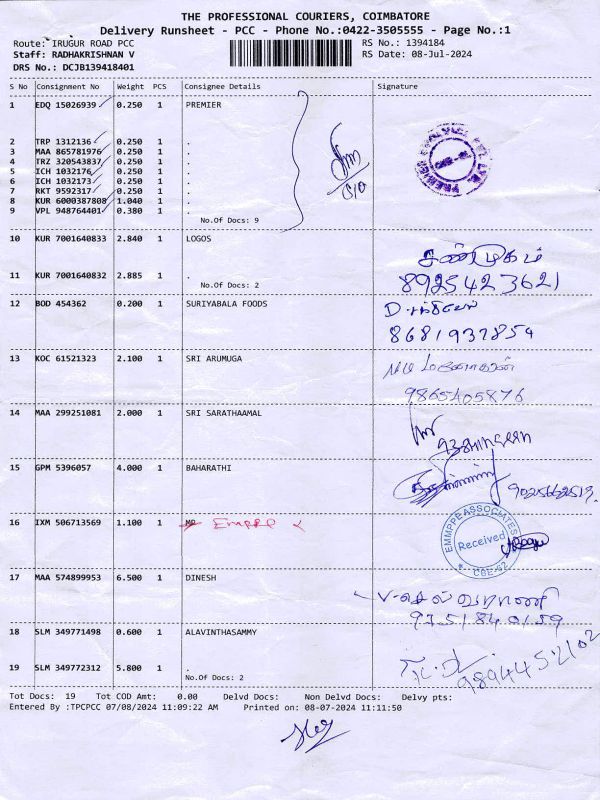 THE PROFESSIONAL COURIERS, COIMBATORE
Delivery Runsheet - PCC - Phone No.:0422-3505555 - Page No.:1
Route: IRUGUR ROAD PCC RS No.: 1394184
Staff: RADHAKRISHNAN V RS Date: 08-Jul-2024
DRS No.: DCJB139418401
S No Consignment No Weight PCS Consignee Details Signature
1 EDQ 15026939 0.250 1 PREMIER
2 TRP 1312136 0.250 1 .
3 MAA 865781976 0.250 1 .
4 TRZ 320543837 0.250 1 .
5 ICH 1032176 0.250 1 .
6 ICH 1032173 0.250 1 .
7 RKT 9592317 0.250 1 .
8 KUR 6000387808 1.040 1 .
9 VPL 948764401 0.380 1 .
No.Of Docs: 9
10 KUR 7001640833 2.840 1 LOGOS
சண்முகம்
11 KUR 7001640832 2.885 1 .
8925423621
No.Of Docs: 2
12 BOD 454362 0.200 1 SURIYABALA FOODS
8681937854
13 KOC 61521323 2.100 1 SRI ARUMUGA
9865405876
14 MAA 299251081 2.000 1 SRI SARATHAAMAL
15 GPM 5396057 4.000 1 BAHARATHI
16 IXM 506713569 1.100 1 MP Emppe
EMMPPE ASSOCIATES
Received
CBE-62
17 MAA 574899953 6.500 1 DINESH
V. செல்வராணி
9751840159
18 SLM 349771498 0.600 1 ALAVINTHASAMMY
9894452102
19 SLM 349772312 5.800 1 .
No.Of Docs: 2
Tot Docs: 19 Tot COD Amt: 0.00 Delvd Docs: Non Delvd Docs: Delvy pts:
Entered By :TPCPCC 07/08/2024 11:09:22 AM Printed on: 08-07-2024 11:11:50